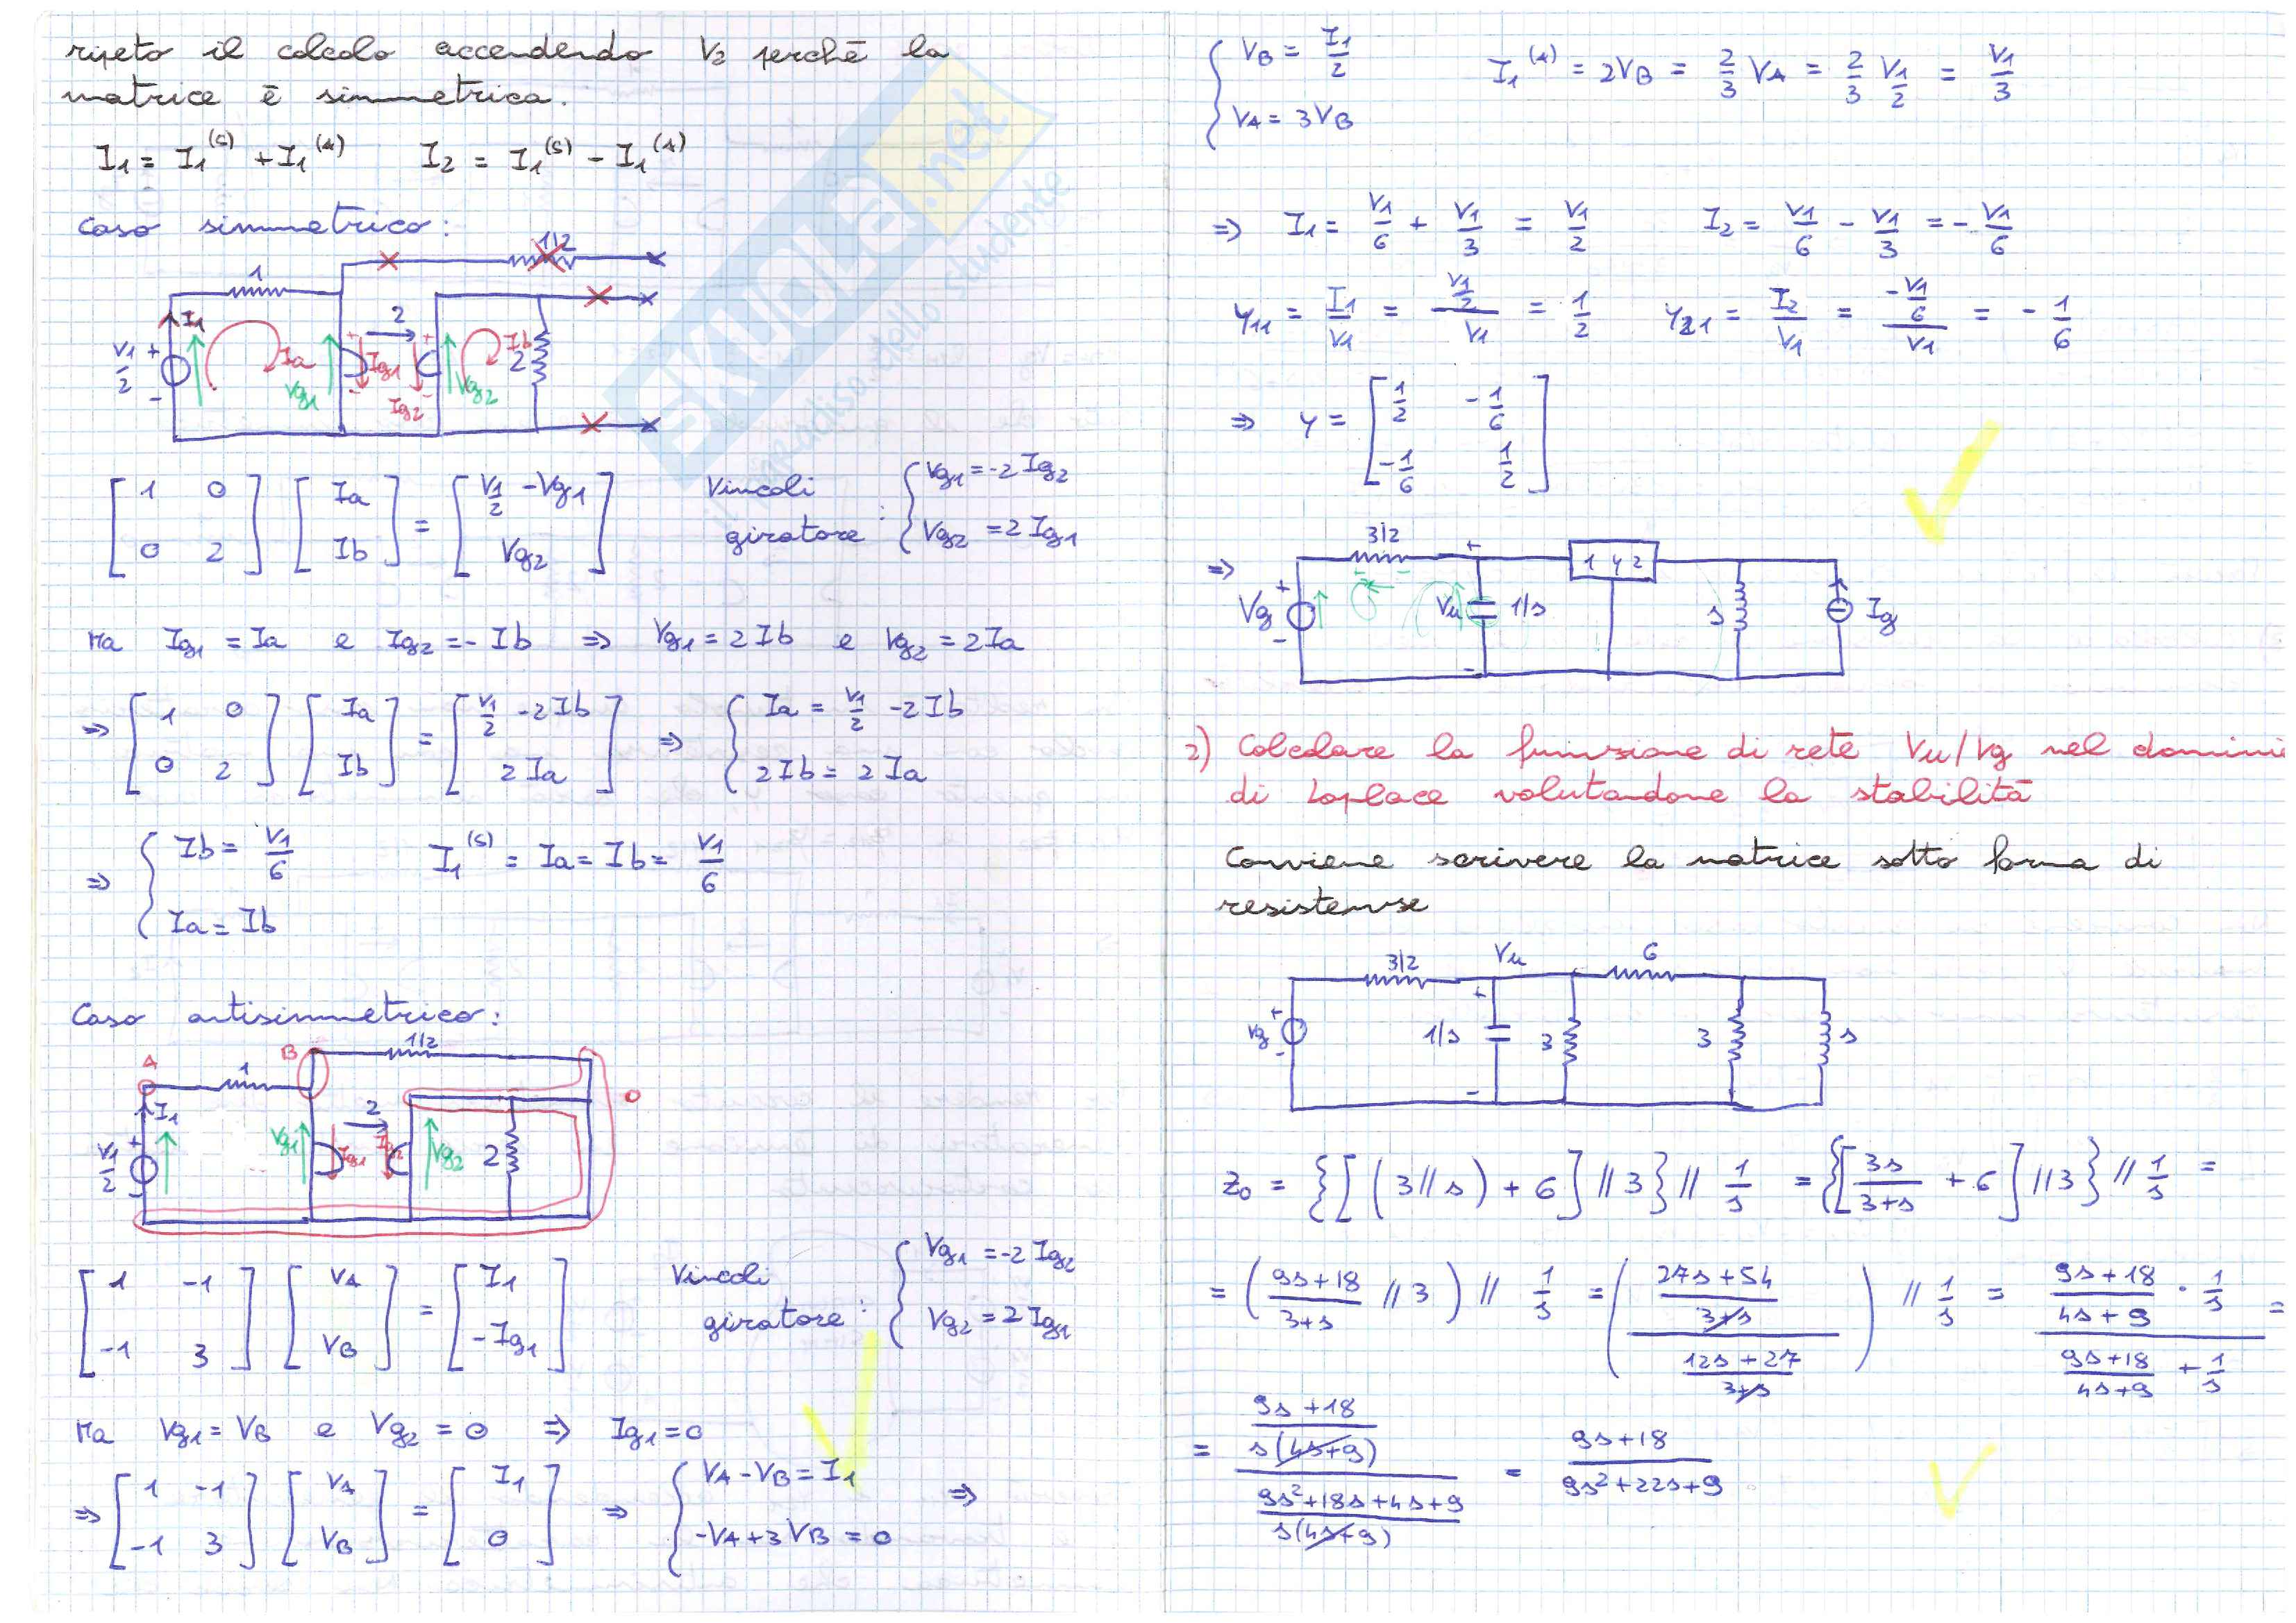 ripeto il calcolo accendendo V2 perchè la
matrice è simmetrica.
I1 = I1^(S) + I1^(A)   I2 = I1^(S) - I1^(A)
Caso simmetrico:
1/2
1
2
I1
Ia
Ig1
Ib
2
V1/2
+
-
Vg1
Ig2
Vg2
[1 0; 0 2] [Ia; Ib] = [V1/2 - Vg1; Vg2]   Vincoli giratore : { Vg1 = -2 Ig2; Vg2 = 2 Ig1
Ma Ig1 = Ia e Ig2 = - Ib ⇒ Vg1 = 2 Ib e Vg2 = 2 Ia
⇒ [1 0; 0 2] [Ia; Ib] = [V1/2 - 2 Ib; 2 Ia] ⇒ { Ia = V1/2 - 2 Ib; 2 Ib = 2 Ia
⇒ { Ib = V1/6; Ia = Ib   I1^(S) = Ia = Ib = V1/6
Caso antisimmetrico:
A
B
1/2
1
0
I1
2
V1/2
+
-
Vg1
Ig1
Ig2
Vg2
2
[1 -1; -1 3] [VA; VB] = [I1; -Ig1]   Vincoli giratore : { Vg1 = -2 Ig2; Vg2 = 2 Ig1
Ma Vg1 = VB e Vg2 = 0 ⇒ Ig1 = 0
⇒ [1 -1; -1 3] [VA; VB] = [I1; 0] ⇒ { VA - VB = I1; -VA + 3 VB = 0 ⇒
{ VB = I1/2; VA = 3 VB   I1^(A) = 2VB = 2/3 VA = 2/3 V1/2 = V1/3
⇒ I1 = V1/6 + V1/3 = V1/2   I2 = V1/6 - V1/3 = - V1/6
Y11 = I1/V1 = (V1/2)/V1 = 1/2   Y21 = I2/V1 = (-V1/6)/V1 = - 1/6
⇒ Y = [1/2 -1/6; -1/6 1/2]
⇒
3/2
+
1 Y 2
Vg
+
-
Vu
1/s
s
Ig
-
2) Calcolare la funzione di rete Vu/Vg nel domini
di Laplace valutandone la stabilità
Conviene scrivere la matrice sotto forma di
resistenze
3/2
Vu
6
Vg
+
-
+
1/s
-
3
3
s
Z0 = {[(3//s) + 6] //3} // 1/s = {[3s/(3+s) + 6] //3} // 1/s =
= ((9s+18)/(3+s) //3) // 1/s = (((27s+54)/(3+s))/((12s+27)/(3+s))) // 1/s = ((9s+18)/(4s+9) · 1/s)/((9s+18)/(4s+9) + 1/s) =
= ((9s+18)/(s(4s+9)))/((9s²+18s+4s+9)/(s(4s+9))) = (9s+18)/(9s²+22s+9)
SKUOLA.net
il paradiso dello studente